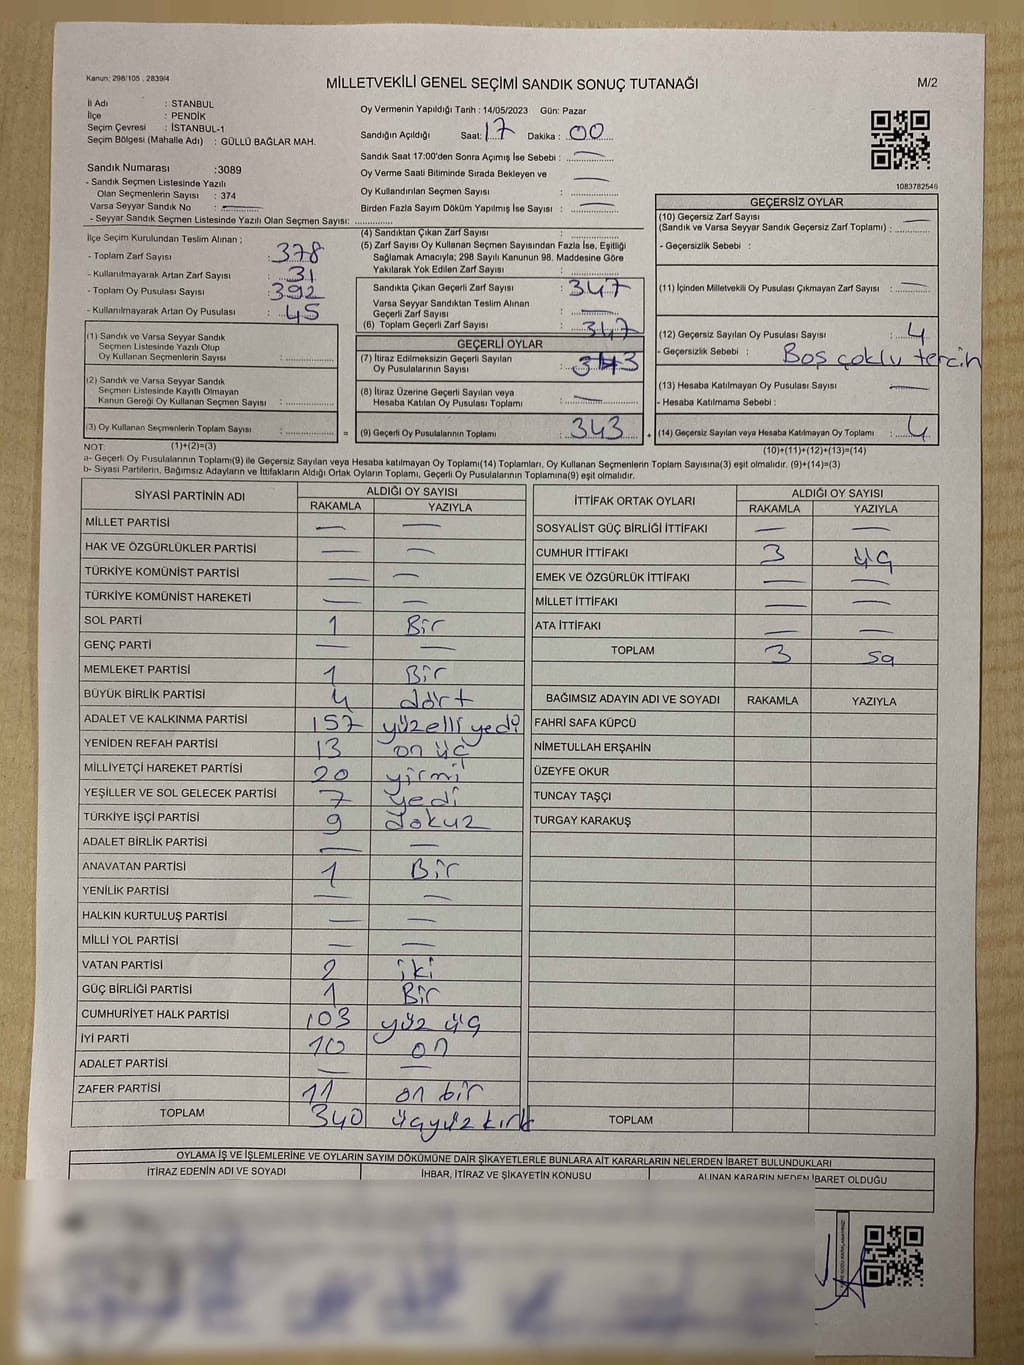 Kanun: 298/105 , 2839/4
MİLLETVEKİLİ GENEL SEÇİMİ SANDIK SONUÇ TUTANAĞI
M/2
İl Adı : STANBUL
İlçe : PENDİK
Seçim Çevresi : İSTANBUL-1
Seçim Bölgesi (Mahalle Adı) : GÜLLÜ BAĞLAR MAH.
Sandık Numarası :3089
- Sandık Seçmen Listesinde Yazılı
Olan Seçmenlerin Sayısı : 374
Varsa Seyyar Sandık No : —
- Seyyar Sandık Seçmen Listesinde Yazılı Olan Seçmen Sayısı: ............
Oy Vermenin Yapıldığı Tarih : 14/05/2023 Gün: Pazar
Sandığın Açıldığı Saat: 17 Dakika : 00
Sandık Saat 17:00'den Sonra Açımış İse Sebebi : —
Oy Verme Saati Bitiminde Sırada Bekleyen ve —
Oy Kullandırılan Seçmen Sayısı :
Birden Fazla Sayım Döküm Yapılmış İse Sayısı : —
1083782546
İlçe Seçim Kurulundan Teslim Alınan ;
- Toplam Zarf Sayısı : 378
- Kullanılmayarak Artan Zarf Sayısı : 31
- Toplam Oy Pusulası Sayısı : 392
- Kullanılmayarak Artan Oy Pusulası : 45
(1) Sandık ve Varsa Seyyar Sandık
Seçmen Listesinde Yazılı Olup
Oy Kullanan Seçmenlerin Sayısı : ............
(2) Sandık ve Varsa Seyyar Sandık
Seçmen Listesinde Kayıtlı Olmayan
Kanun Gereği Oy Kullanan Seçmen Sayısı : ............
(3) Oy Kullanan Seçmenlerin Toplam Sayısı : ............ =
(4) Sandıktan Çıkan Zarf Sayısı :
(5) Zarf Sayısı Oy Kullanan Seçmen Sayısından Fazla İse, Eşitliği
Sağlamak Amacıyla; 298 Sayılı Kanunun 98. Maddesine Göre
Yakılarak Yok Edilen Zarf Sayısı : ............
Sandıkta Çıkan Geçerli Zarf Sayısı : 347
Varsa Seyyar Sandıktan Teslim Alınan
Geçerli Zarf Sayısı : —
(6) Toplam Geçerli Zarf Sayısı : 347
GEÇERLİ OYLAR
(7) İtiraz Edilmeksizin Geçerli Sayılan
Oy Pusulalarının Sayısı : 343
(8) İtiraz Üzerine Geçerli Sayılan veya
Hesaba Katılan Oy Pusulası Toplamı : —
(9) Geçerli Oy Pusulalarının Toplamı : 343 +
GEÇERSİZ OYLAR
(10) Geçersiz Zarf Sayısı —
(Sandık ve Varsa Seyyar Sandık Geçersiz Zarf Toplamı) : ............
- Geçersizlik Sebebi :
(11) İçinden Milletvekili Oy Pusulası Çıkmayan Zarf Sayısı : —
(12) Geçersiz Sayılan Oy Pusulası Sayısı : 4
- Geçersizlik Sebebi : Boş çoklu tercin
(13) Hesaba Katılmayan Oy Pusulası Sayısı : —
- Hesaba Katılmama Sebebi :
(14) Geçersiz Sayılan veya Hesaba Katılmayan Oy Toplamı : 4
NOT: (1)+(2)=(3)
(10)+(11)+(12)+(13)=(14)
a- Geçerli Oy Pusulalarının Toplamı(9) ile Geçersiz Sayılan veya Hesaba katılmayan Oy Toplamı(14) Toplamları, Oy Kullanan Seçmenlerin Toplam Sayısına(3) eşit olmalıdır. (9)+(14)=(3)
b- Siyasi Partilerin, Bağımsız Adayların ve İttifakların Aldığı Ortak Oyların Toplamı, Geçerli Oy Pusulalarının Toplamına(9) eşit olmalıdır.
SİYASİ PARTİNİN ADI ALDIĞI OY SAYISI
RAKAMLA YAZIYLA
MİLLET PARTİSİ — —
HAK VE ÖZGÜRLÜKLER PARTİSİ — —
TÜRKİYE KOMÜNİST PARTİSİ — —
TÜRKİYE KOMÜNİST HAREKETİ — —
SOL PARTİ 1 Bir
GENÇ PARTİ — —
MEMLEKET PARTİSİ 1 Bir
BÜYÜK BİRLİK PARTİSİ 4 dört
ADALET VE KALKINMA PARTİSİ 157 yüzelli yedi
YENİDEN REFAH PARTİSİ 13 on üç
MİLLİYETÇİ HAREKET PARTİSİ 20 yirmi
YEŞİLLER VE SOL GELECEK PARTİSİ 7 yedi
TÜRKİYE İŞÇİ PARTİSİ 9 dokuz
ADALET BİRLİK PARTİSİ — —
ANAVATAN PARTİSİ 1 Bir
YENİLİK PARTİSİ — —
HALKIN KURTULUŞ PARTİSİ — —
MİLLİ YOL PARTİSİ — —
VATAN PARTİSİ 2 iki
GÜÇ BİRLİĞİ PARTİSİ 1 Bir
CUMHURİYET HALK PARTİSİ 103 yüz üç
İYİ PARTİ 10 on
ADALET PARTİSİ — —
ZAFER PARTİSİ 11 on bir
TOPLAM 340 üçyüz kırk
İTTİFAK ORTAK OYLARI ALDIĞI OY SAYISI
RAKAMLA YAZIYLA
SOSYALİST GÜÇ BİRLİĞİ İTTİFAKI — —
CUMHUR İTTİFAKI 3 üç
EMEK VE ÖZGÜRLÜK İTTİFAKI — —
MİLLET İTTİFAKI — —
ATA İTTİFAKI — —
TOPLAM 3
BAĞIMSIZ ADAYIN ADI VE SOYADI RAKAMLA YAZIYLA
FAHRİ SAFA KÜPCÜ
NİMETULLAH ERŞAHİN
ÜZEYFE OKUR
TUNCAY TAŞÇI
TURGAY KARAKUŞ
TOPLAM
OYLAMA İŞ VE İŞLEMLERİNE VE OYLARIN SAYIM DÖKÜMÜNE DAİR ŞİKAYETLERLE BUNLARA AİT KARARLARIN NELERDEN İBARET BULUNDUKLARI
İTİRAZ EDENİN ADI VE SOYADI İHBAR, İTİRAZ VE ŞİKAYETİN KONUSU ALINAN KARARIN NEDEN İBARET OLDUĞU